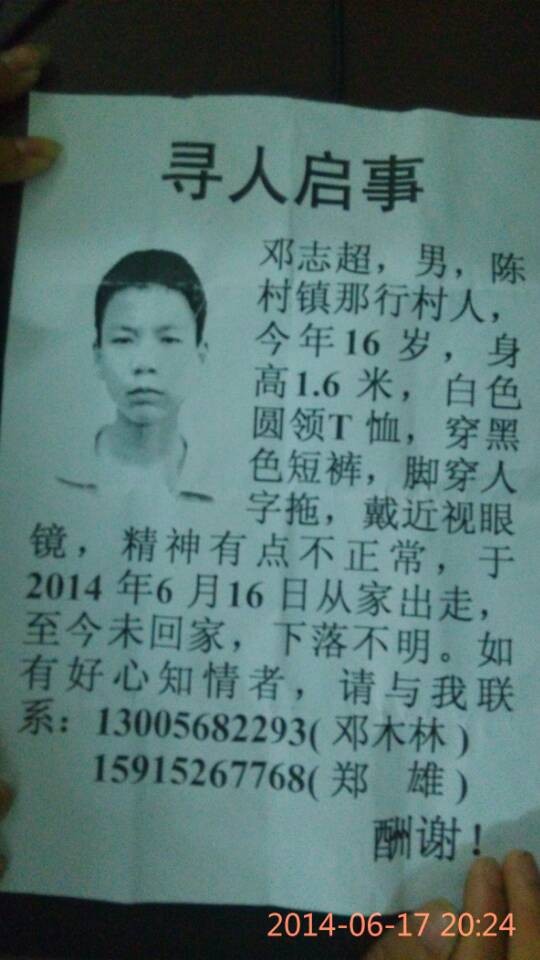 寻人启事
邓志超，男，陈
村镇那行村人，
今年16 岁，身
高1.6 米，白色
圆领T 恤，穿黑
色短裤，脚穿人
字拖，戴近视眼
镜，精神有点不正常，于
2014 年6 月16 日从家出走，
至今未回家，下落不明。如
有好心知情者，请与我联
系：13005682293( 邓木林 )
15915267768( 郑 雄 )
酬谢！
2014-06-17 20:24